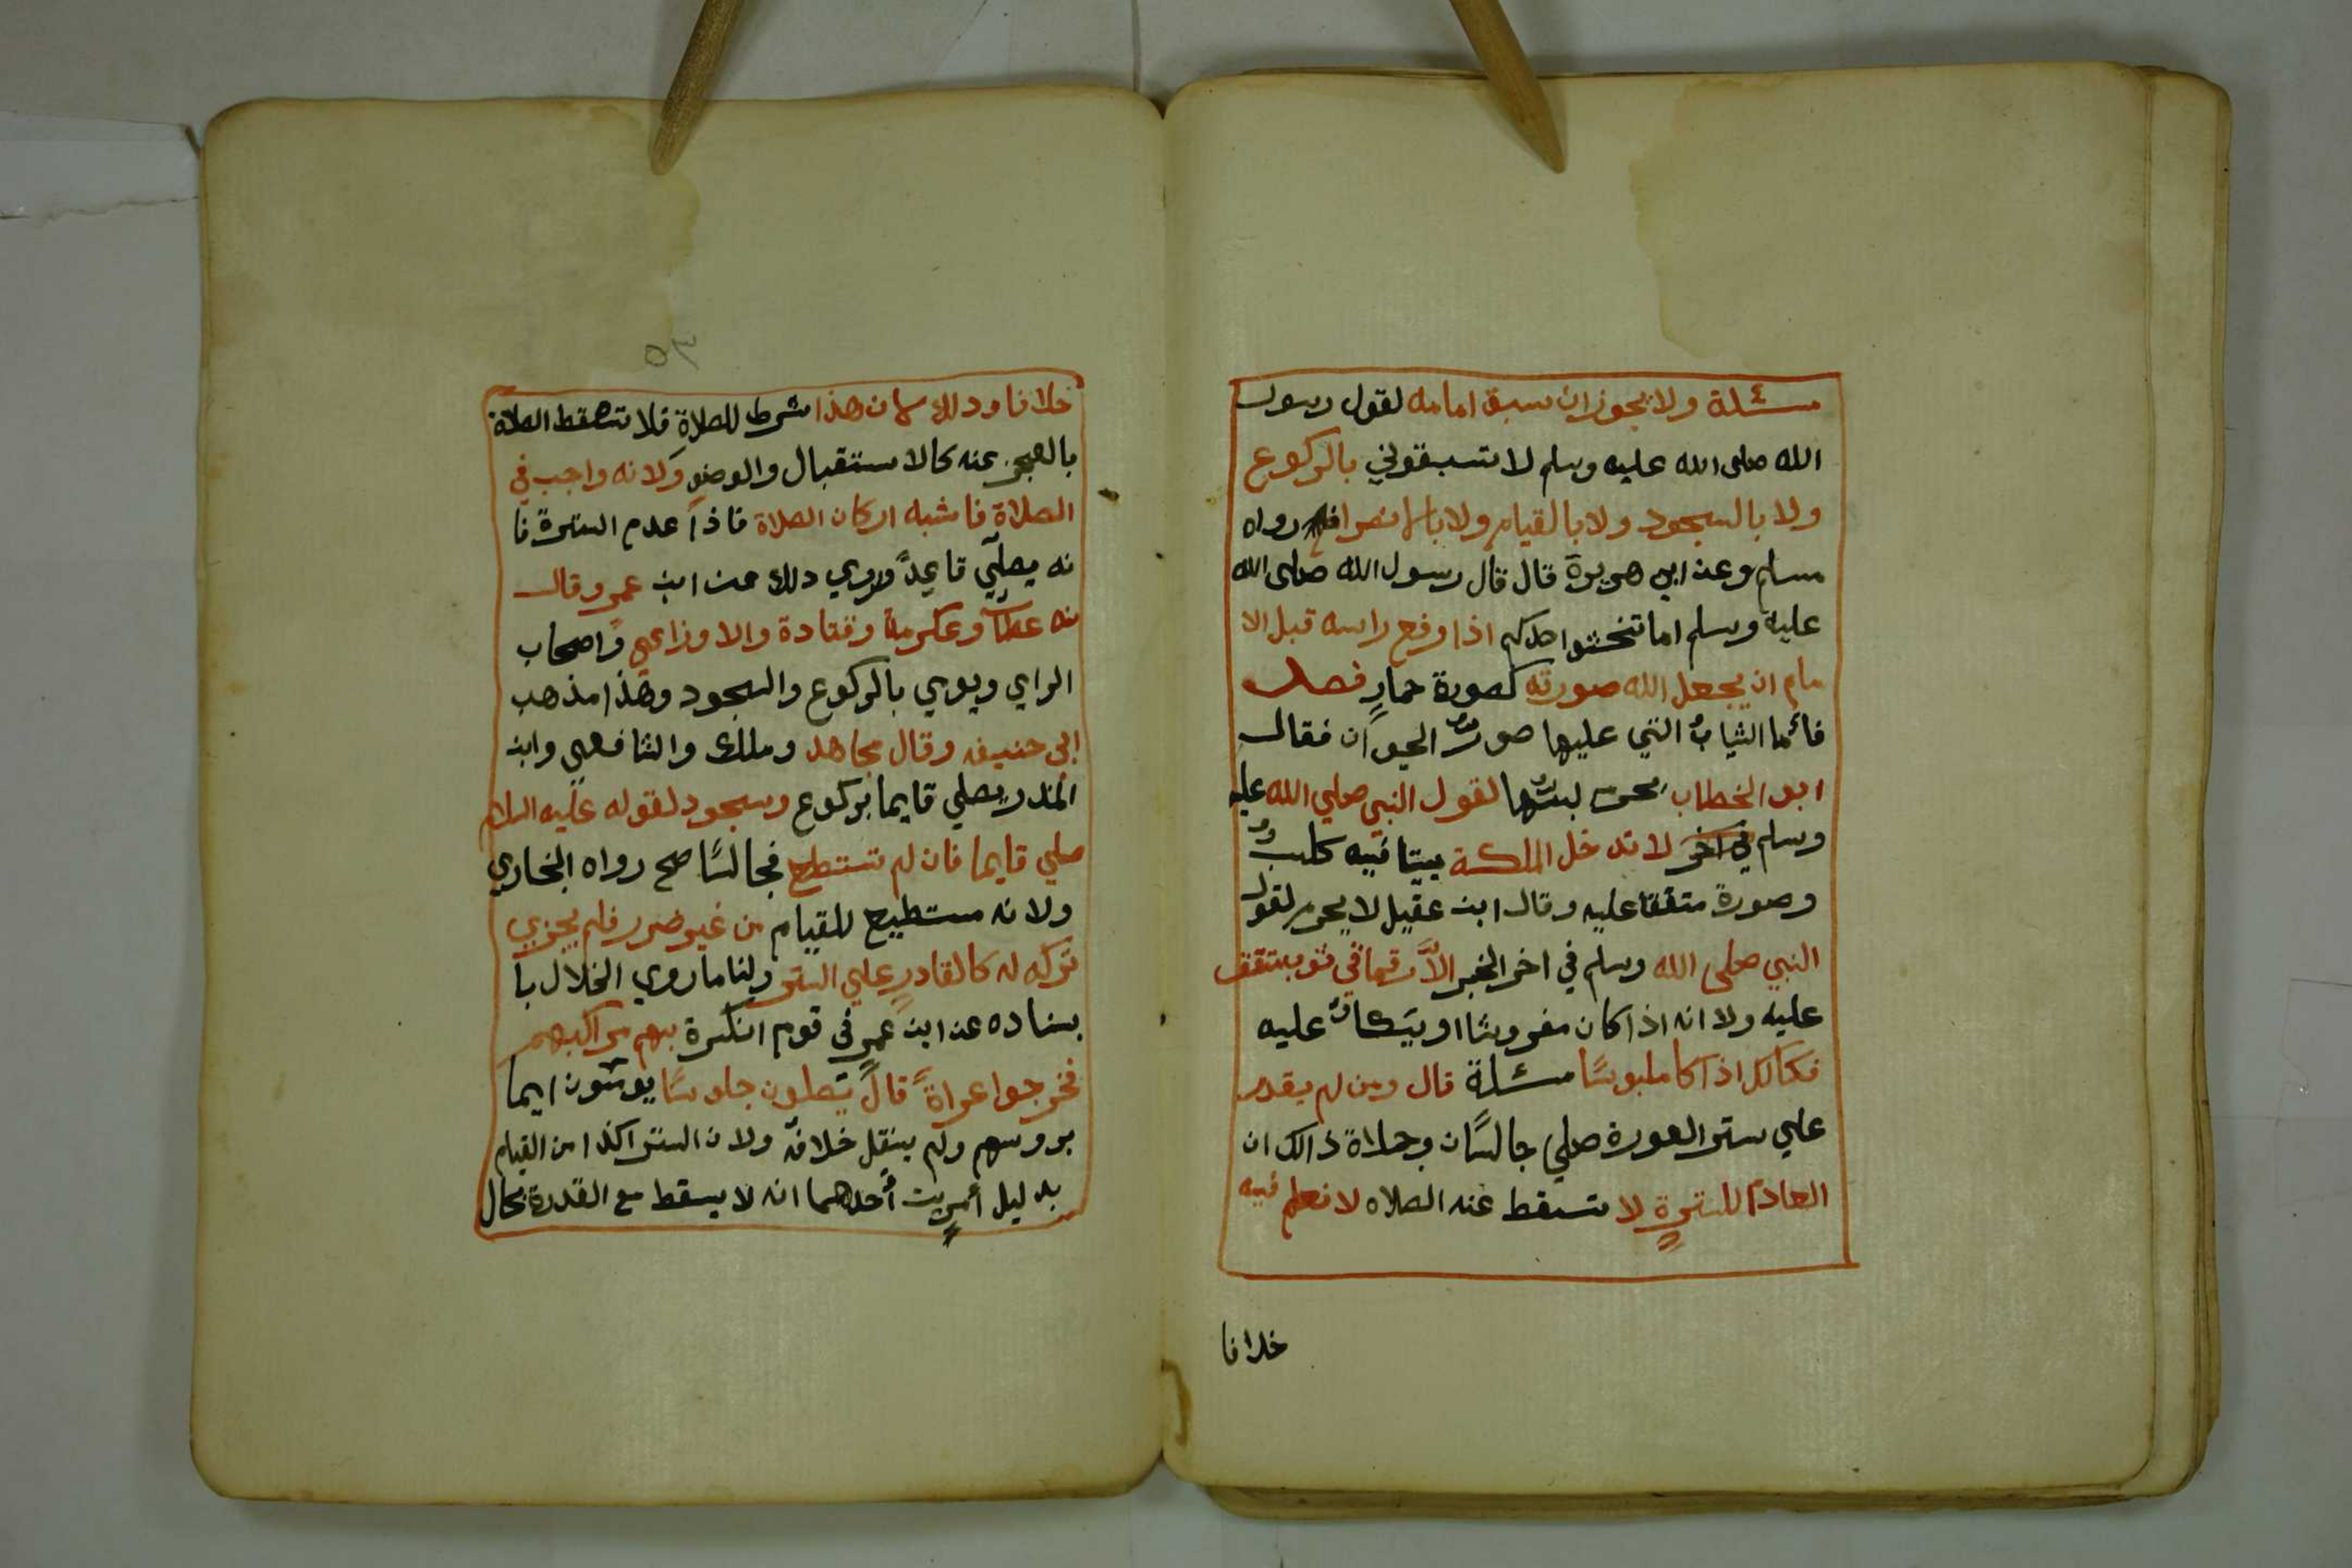 مسئلة ولا يجوز ان سبق امامه لقول رسول
الله صلى الله عليه وسلم لا تسبقوني بالركوع
ولا بالسجود ولا بالقيام ولا بالانصراف رواه
مسلم وعن ابي هريرة قال قال رسول الله صلى الله
عليه وسلم اما تخشوا حدكم اذا رفع راسه قبل الا
مام ان يجعل الله صورته كصورة حمارٍ فصل
فائما الثيابُ التي عليها صورُ الحيوان فقال
ابو الخطاب يحرم لبسُها لقول النبي صلي الله عليه
وسلم لا تدخل الملكة بيتا فيه كلبٌ
وصورة متفقا عليه وقال ابن عقيل لا يحرم لقول
النبي صلى الله وسلم في اخر الخبر الاَّ رقما في ثوب متفق
عليه ولا انه اذا كان مفروشا او يتكا عليه
فكالك اذا كا ملبوسًا مسئلة قال ومن لم يقدر
علي ستر العورة صلي جالسًان وحلاة ذالك ان
العادم للسترةٍ لا تسقط عنه الصلاه لا نعلم فيه
خلافا
٣٥
خلافا وذلك لان هذا شرط للصلاة فلا تسقط الصلاة
بالعجز عنه كالاستقبال والوضو ولانه واجب في
الصلاة فاشبه اركان الصلاة فاذا عدم السترة فا
نه يصلّي قاعداً وروي ذلك عن ابن عمر وقال
به عطآ وعكرمة وقتادة والاوزاعي واصحاب
الراي ويومي بالركوع والسجود وهذا مذهب
ابي حنيفه وقال مجاهد وملك والشافعي وابن
المنذر يصلي قايما بركوع وسجود لقوله عليه السلام
صلي قايما فان لم تستطع فجالسًا صح رواه البخاري
ولانه مستطيع للقيام من غير ضرر فلم يجزي
تركه له كالقادرٍ علي الستر ولنا ما روي الخلال با
سناده عن ابن عمرٍ في قوم انكسرة بهم مراكبهم
فخرجوا عراةً قال يصلون جلوسًا يومئون ايما
بروسهم ولم ينقل خلافه ولان الستر اكد من القيام
بدليل أمرين أحدهما انه لا يسقط مع القدرة بحال